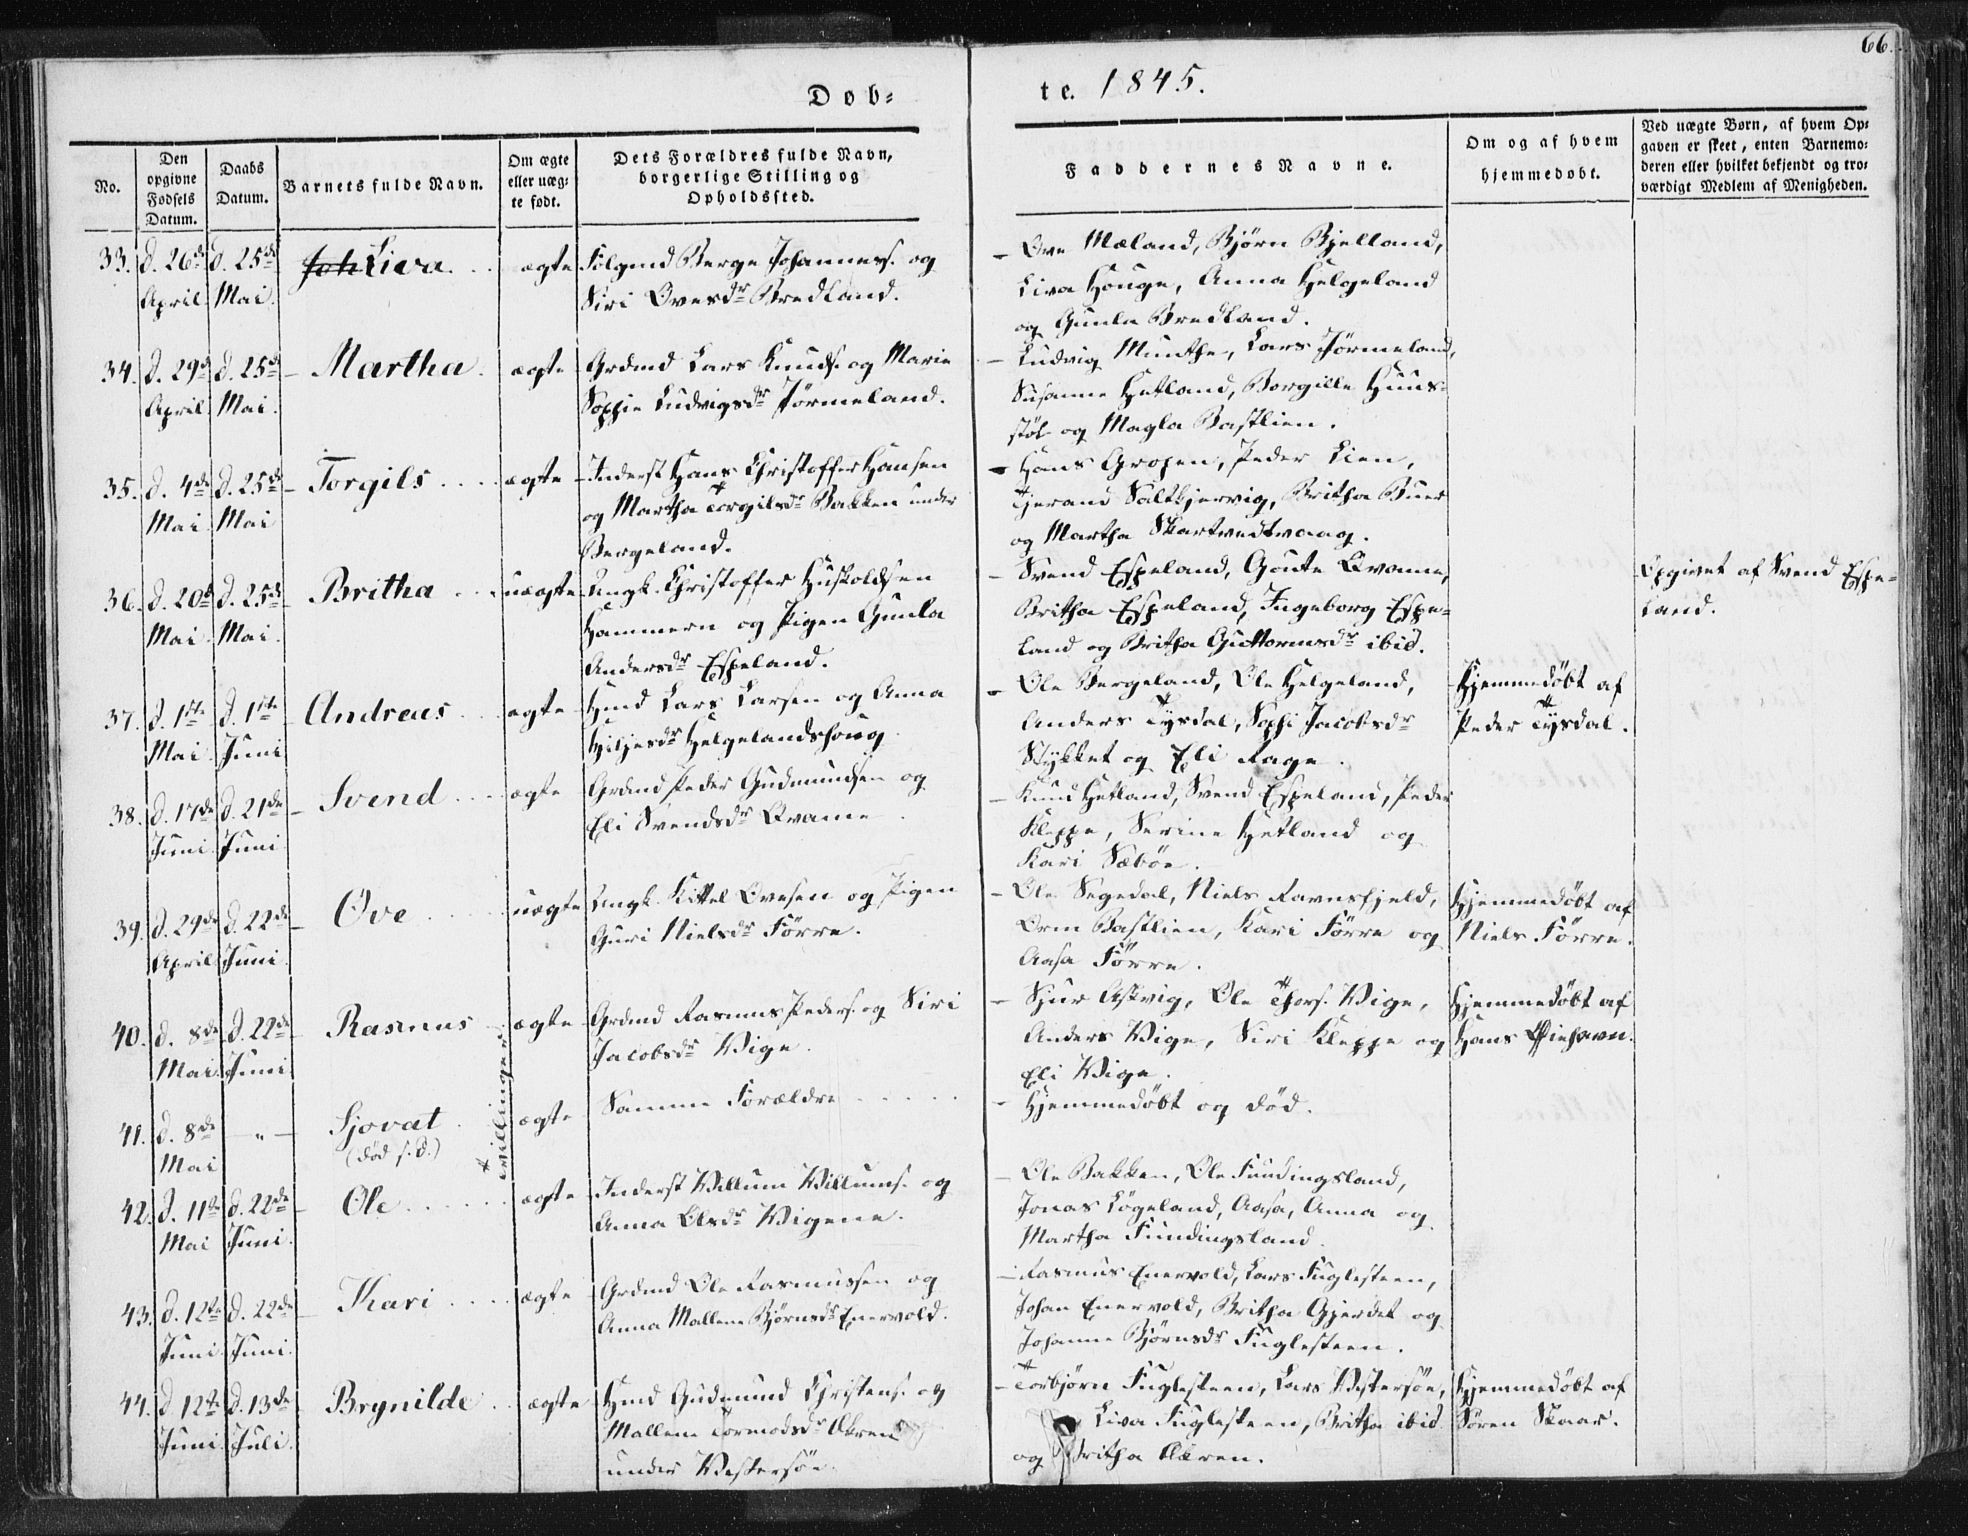 66.
Døb=
te. 1845.
No.
Den opgivne Fødsels Datum.
Daabs Datum.
Barnets fulde Navn.
Om ægte eller uæg= te født.
Dets Forældres fulde Navn, borgerlige Stilling og Opholdssted.
Faddernes Navne.
Om og af hvem hjemmedøbt.
Ved uægte Børn, af hvem Op= gaven er skeet, enten Barnemo= deren eller hvilket bekjendt og tro= værdigt Medlem af Menigheden.
33. d. 26de April d. 25de Mai Joh Liva. ægte
Folgmd Berge Johanness. og
Siri Ovesdr Bredland.
Ove Mæland, Bjørn Bjelland,
Liva Houge, Anna Helgeland
og Gunla Bredland.
34. d. 29de April d. 25de Mai Martha. ægte
Grdmd Lars Knuds. og Marie
Sophie Ludvigsdr Tørmeland.
Ludvig Munthe, Lars Tørmeland,
Susanne Hetland, Borgille Huus=
støl og Magla Bastlien.
35. d. 4de Mai d. 25de Mai Torgils ægte
Inderst Hans Christoffer Hansen
og Martha Torgilsdr Bakken under
Bergeland.
Hans Gropen, Peder Lien,
Tjerand Saltkjervig, Britha Buer
og Martha Skartvedtvaag.
36. d. 20de Mai d. 25de Mai Britha uægte
Ungk. Christoffer Huskoldsen
Hammern og Pigen Gunla
Andersdr Espeland.
Svend Espeland, Goute Qvame,
Britha Espeland, Ingeborg Espe=
land og Britha Guttormsdr ibid.
Opgivet af Svend Espe=
land.
37. d. 1ste Mai d. 1ste Juni Andreas ægte
Hmd Lars Larsen og Anna
Hiljesdr Helgelandshoug.
Ole Bergeland, Ole Helgeland,
Anders Tysdal, Sophi Jacobsdr
Stykket og Eli Rage.
Hjemmedøbt af
Peder Tysdal.
38. d. 17de Juni d. 21de Juni Svend ægte
Grdmd Peder Gudmundsen og
Eli Svendsdr Qvame
Knud Hetland, Svend Espeland, Peder
Kleppe, Serine Hetland og
Kari Sæbøe.
39. d. 29de April d. 22de Juni Ove uægte
Ungk. Kittel Ovesen og Pigen
Guri Nielsdr Førre.
Ole Segedal, Niels Ravnsfjeld,
Orm Bastlien, Kari Førre og
Aasa Førre.
Hjemmedøbt af
Niels Førre.
40. d. 8de Mai d. 22de Juni Rasmus ægte
Grdmd Rasmus Peders. og Siri
Jacobsdr Vige.
Sjur Astvig, Ole Thors. Vige,
Anders Vige, Siri Kleppe og
Eli Vige.
Hjemmedøbt af
Hans Øiehavn.
Tvillinger
41. d. 8de Mai — „ — Sjovat ægte
(død s. D.)
Samme Forældre
Hjemmedøbt og død.
42. d. 11te Mai d. 22de Juni Ole ægte
Inderst Villum Villums. og
Anna Olsdr Vigene.
Ole Bakken, Ole Fundingsland,
Jonas Løgeland, Aasa, Anna og
Martha Fundingsland.
43. d. 12te Juni d. 22de Juni Kari ægte
Grdmd Ole Rasmussen og
Anna Mallene Bjørnsdr Enervold.
Rasmus Enervold, Lars Fuglesteen,
Johan Enervold, Britha Gjerdet og
Johanne Bjørnsdr Fuglesteen.
44. d. 12te Juni d. 13de Juli Brynilde ægte
Hmd Gudmund Christens. og
Mallene Tormodsdr Økren
under Vestersøe.
Torbjørn Fuglesteen, Lars Vestersøe,
Liva Fuglesteen, Britha ibid
og Britha Økren.
Hjemmedøbt af
Søren Skaar.